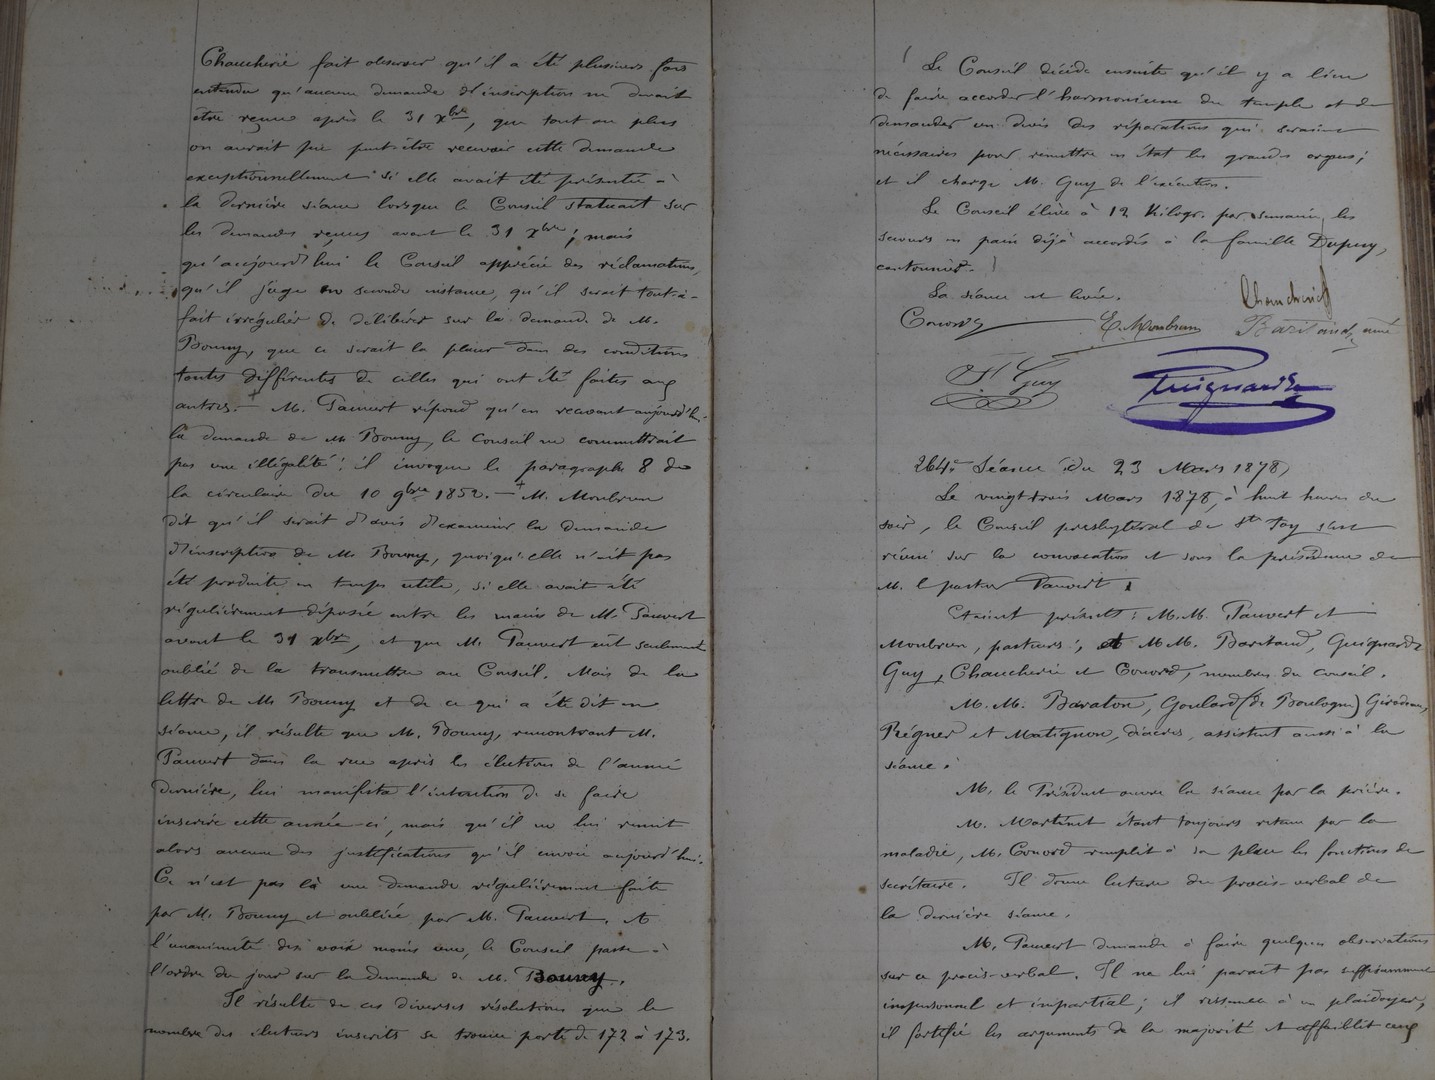 Chaucherie fait observer qu'il a été plusieurs fois
entendu qu'aucune demande d'inscription ne devait
être reçue après le 31 xbre, que tout au plus
on aurait pu peut-être recevoir cette demande
exceptionnellement si elle avait été présentée à
la dernière séance lorsque le Conseil statuait sur
les demandes reçues avant le 31 xbre ; mais
qu'aujourd'hui le Conseil apprécie des réclamations,
qu'il juge en seconde instance, qu'il serait tout-à-
fait irrégulier de délibérer sur la demande de M.
Bouny, que ce serait la placer dans des conditions
toutes différentes de celles qui ont été faites aux
autres. — M. Pauvert répond qu'en recevant aujourd'hui
la demande de M. Bouny, le Conseil ne commettrait
pas une illégalité ; il invoque le paragraphe 8 de
la circulaire du 10 9bre 1852. — M. Monbrun
dit qu'il serait d'avis d'examiner la demande
d'inscription de M. Bouny, quoiqu'elle n'ait pas
été produite en temps utile, si elle avait été
régulièrement déposée entre les mains de M. Pauvert
avant le 31 xbre, et que M. Pauvert eût seulement
oublié de la transmettre au Conseil. Mais de la
lettre de M. Bouny et de ce qui a été dit en
séance, il résulte que M. Bouny, rencontrant M.
Pauvert dans la rue après les élections de l'année
dernière, lui manifesta l'intention de se faire
inscrire cette année-ci, mais qu'il ne lui remit
alors aucune des justifications qu'il envoie aujourd'hui.
Ce n'est pas là une demande régulièrement faite
par M. Bouny et oubliée par M. Pauvert. A
l'unanimité des voix moins une, le Conseil passe à
l'ordre du jour sur la demande de M. Bouny.
Il résulte de ces diverses résolutions que le
nombre des électeurs inscrits se trouve porté de 172 à 173.
Le Conseil décide ensuite qu'il y a lieu
de faire accorder l'harmonium du temple et de
demander un devis des réparations qui seraient
nécessaires pour remettre en état les grandes orgues ;
et il charge M. Guy de l'exécution.
Le Conseil élève à 12 Kilogr. par semaine, les
secours en pain déjà accordés à la famille Dupuy,
cantonnier.
La séance est levée.
Chaucherie
Conord E. Monbrun Baritaud, ainé
Ft Guy Guignard
264e Séance du 23 Mars 1878
Le vingt trois Mars 1878, à huit heures du
soir, le Conseil presbytéral de Ste Foy s'est
réuni sur la convocation et sous la présidence de
M. le pasteur Pauvert.
Etaient présents : M.M. Pauvert et
Monbrun, pasteurs ; et M.M. Baritaud, Guignard
Guy, Chaucherie et Conord, membres du conseil.
M.M. Baraton, Goulard (de Boulogne) Girodeau,
Régner et Matignon, diacres, assistent aussi à la
séance.
M. le Président ouvre la séance par la prière.
M. Martinet étant toujours retenu par la
maladie, M. Conord remplit à sa place les fonctions de
secrétaire. Il donne lecture du procès-verbal de
la dernière séance.
M. Pauvert demande à faire quelques observations
sur ce procès-verbal. Il ne lui parait pas suffisamment
impersonnel et impartial ; il ressemble à un plaidoyer,
il fortifie les arguments de la majorité et affaiblit ceux